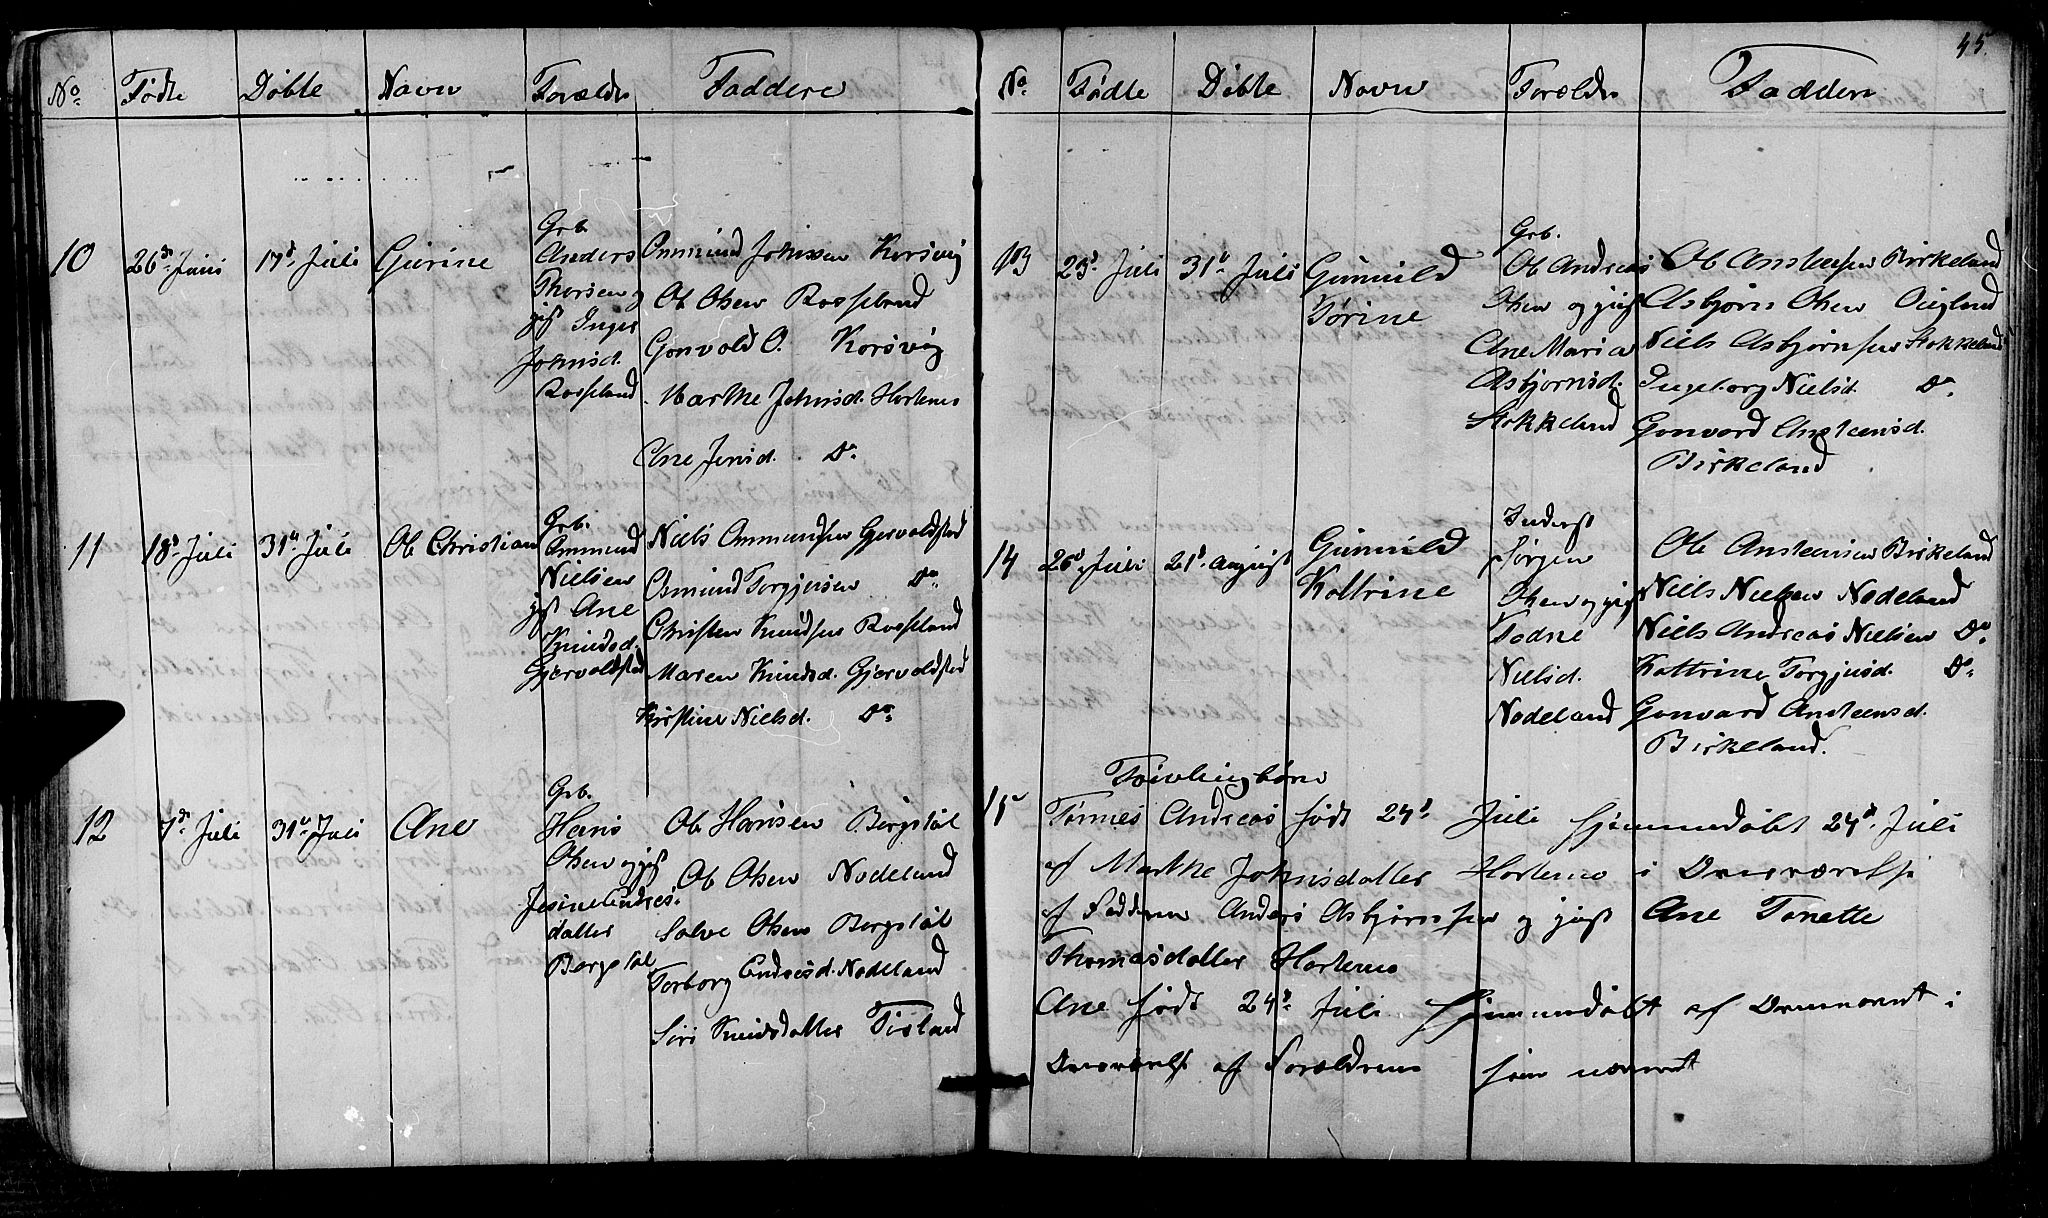 No. Fødte Døbte Navn Forældre Faddere
10 26de Juni 17de Juli Gurine
Grb.
Anders
Thorsen og
gift Inger
Johnsd.
Rosseland
Ommund Johnsen Korsvig
Ole Olsen Rosseland
Gonvold O. Korsvig
Marthe Johnsd. Hortemo
Ane Jensd. Do.
11 18de Juli 31te Juli Ole Christian
Grb.
Ommund
Nielsen
gift Ane
Knudsd.
Gjervoldstad
Niels Ommundsen Gjervoldstad
Osmund Torgjusen Do.
Christen Knudsen Rosseland
Maren Knudsd. Gjervoldstad
Kristine Nielsd. Do.
12 7de Juli 31te Juli Ane
Grb.
Hans
Olsen og gift
Jesine Endres-
datter
Bergstøl
Ole Hansen Bergstøl
Ole Olsen Nodeland
Salve Olsen Bergstøl
Torborg Endresd. Nodeland
Siri Knudsdatter Fisland
45.
No. Fødte Døbte Navn Forældre Faddere
13 25de Juli 31te Juli Gunuld
Tørine
Grb.
Ole Andreas
Olsen og gift
Ane Maria
Asbjørnsd.
Stokkeland
Ole Anstensen Birkeland
Asbjørn Olsen Eigland
Niels Asbjørnsen Stokkeland
Ingeborg Nielsd. Do.
Gonvord Ansteensd.
Birkeland
14 26de Juli 21de august Gunuld
Kattrine
Inderst
Jørgen
Olsen og gift
Todne
Nielsd.
Nodeland
Ole Ansteensen Birkeland
Niels Nielsen Nodeland
Niels Andreas Nielsen Do.
Kattrine Torgjusd. Do.
Gonvard Ansteensd.
Birkeland.
Tvivlingbørn
15 Tønnes Andreas født 24de Juli hjemmedøbt 24de Juli
af Marthe Johnsdatter Hortemo i Overværelse
af Fadderen Anders Asbjørnsen og gift Ane Tonette
Thomasdatter Hortemo
Ane født 24de Juli hjemmedøbt af Ovennævnt i
Overværelse af Forældrene som nævnt